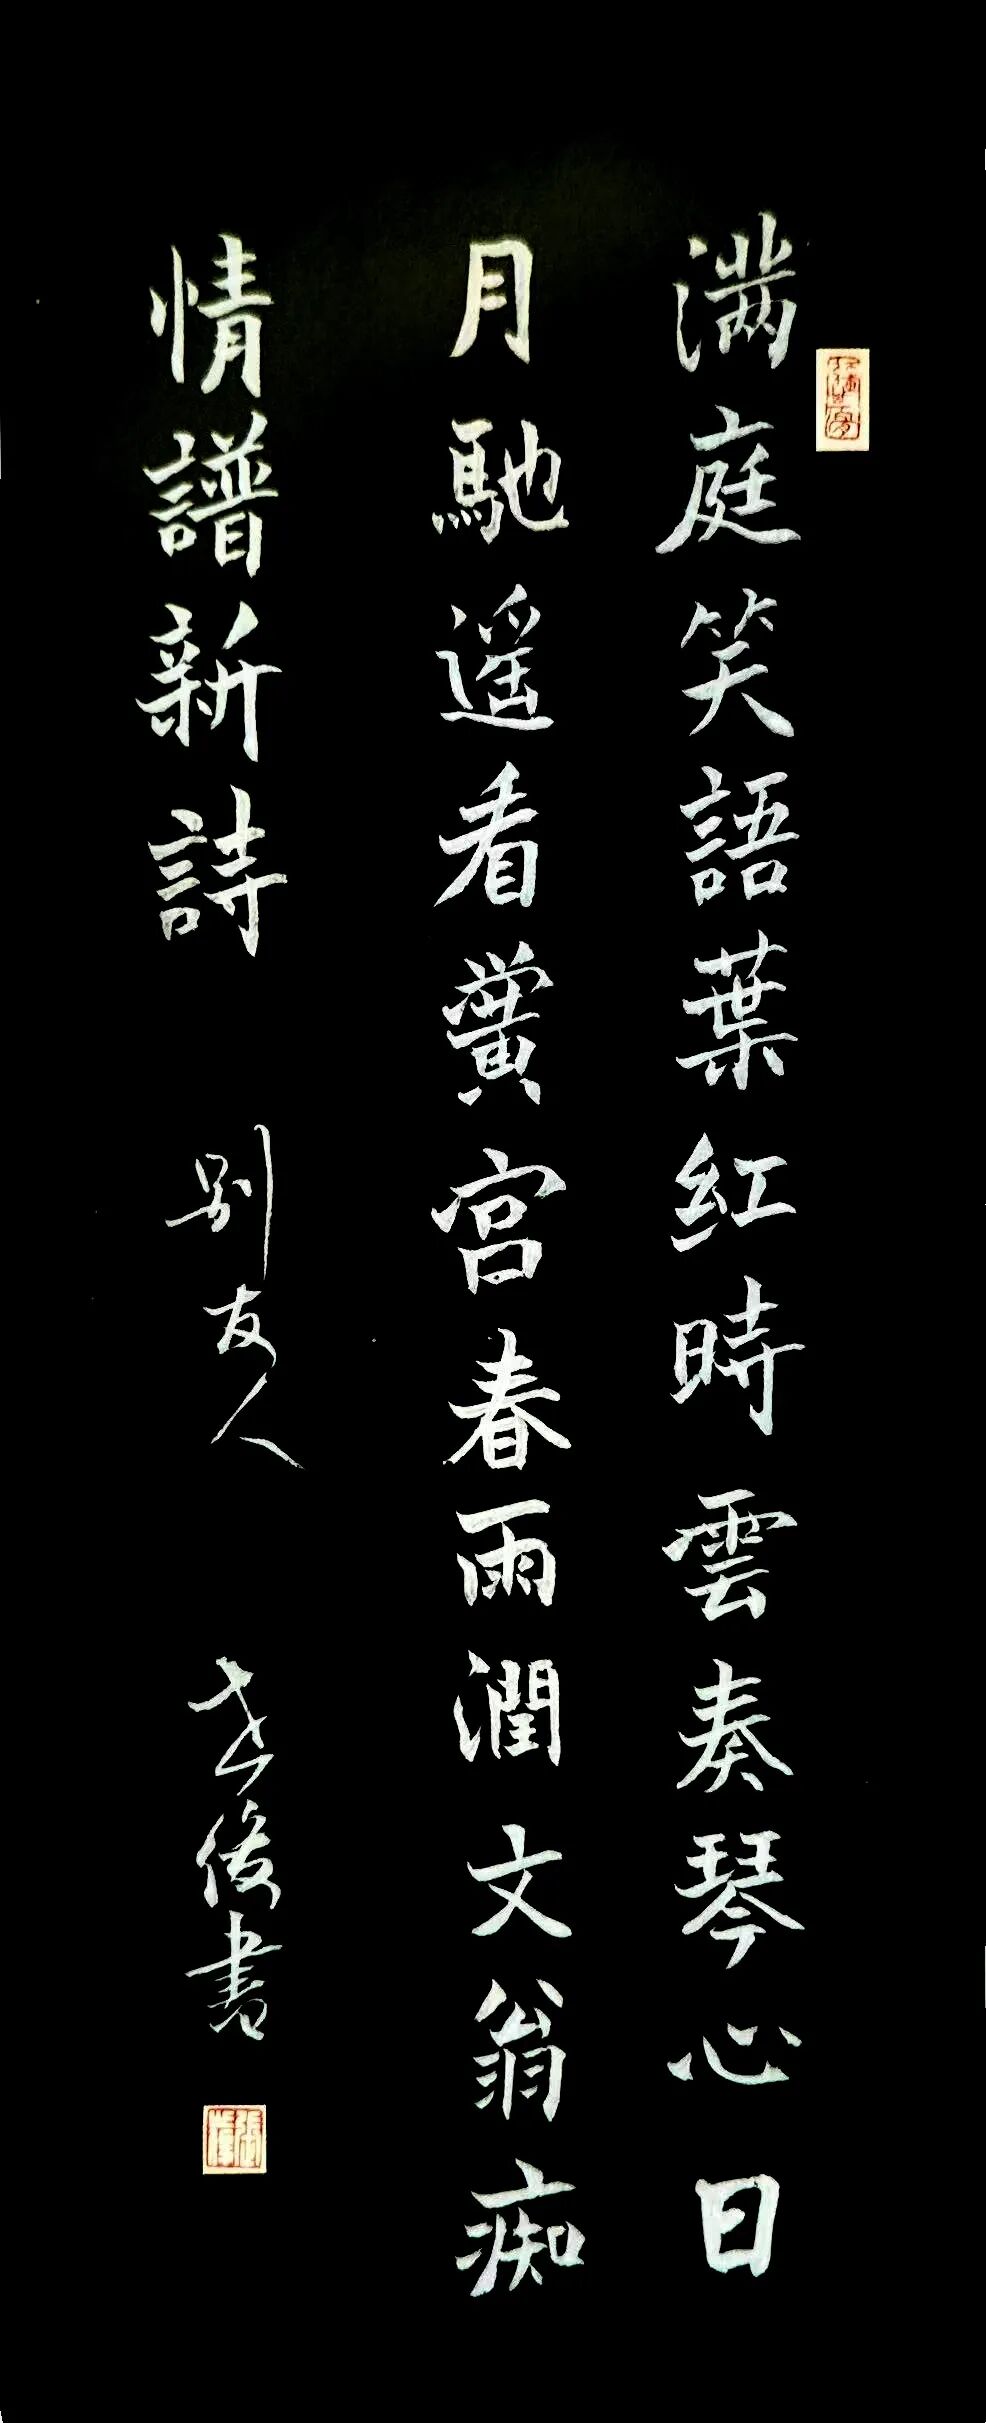 满庭笑語葉紅時雲奏琴心日
月馳遥看黌宮春雨潤文翁痴
情譜新詩
别友人
書